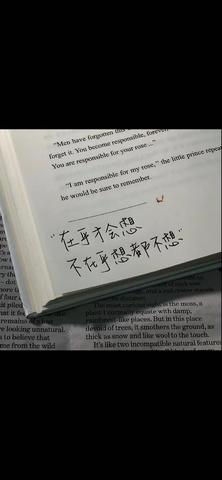 "Men have forgotten this
forget it. You become responsible, forever,
You are responsible for your rose ..."
"I am responsible for my rose," the little prince repeated
he would be sure to remember.
"在乎才会想
不在乎想都不想"
The most curious sight is the moss, a
plant I normally equate with damp,
rainforest-like places. But in this place
devoid of trees, it smothers the ground, as
thick as snow and like wool to the touch.
It's like two incompatible natural features
remains of a lost
re looking unnatural.
s to believe that
me from the wild